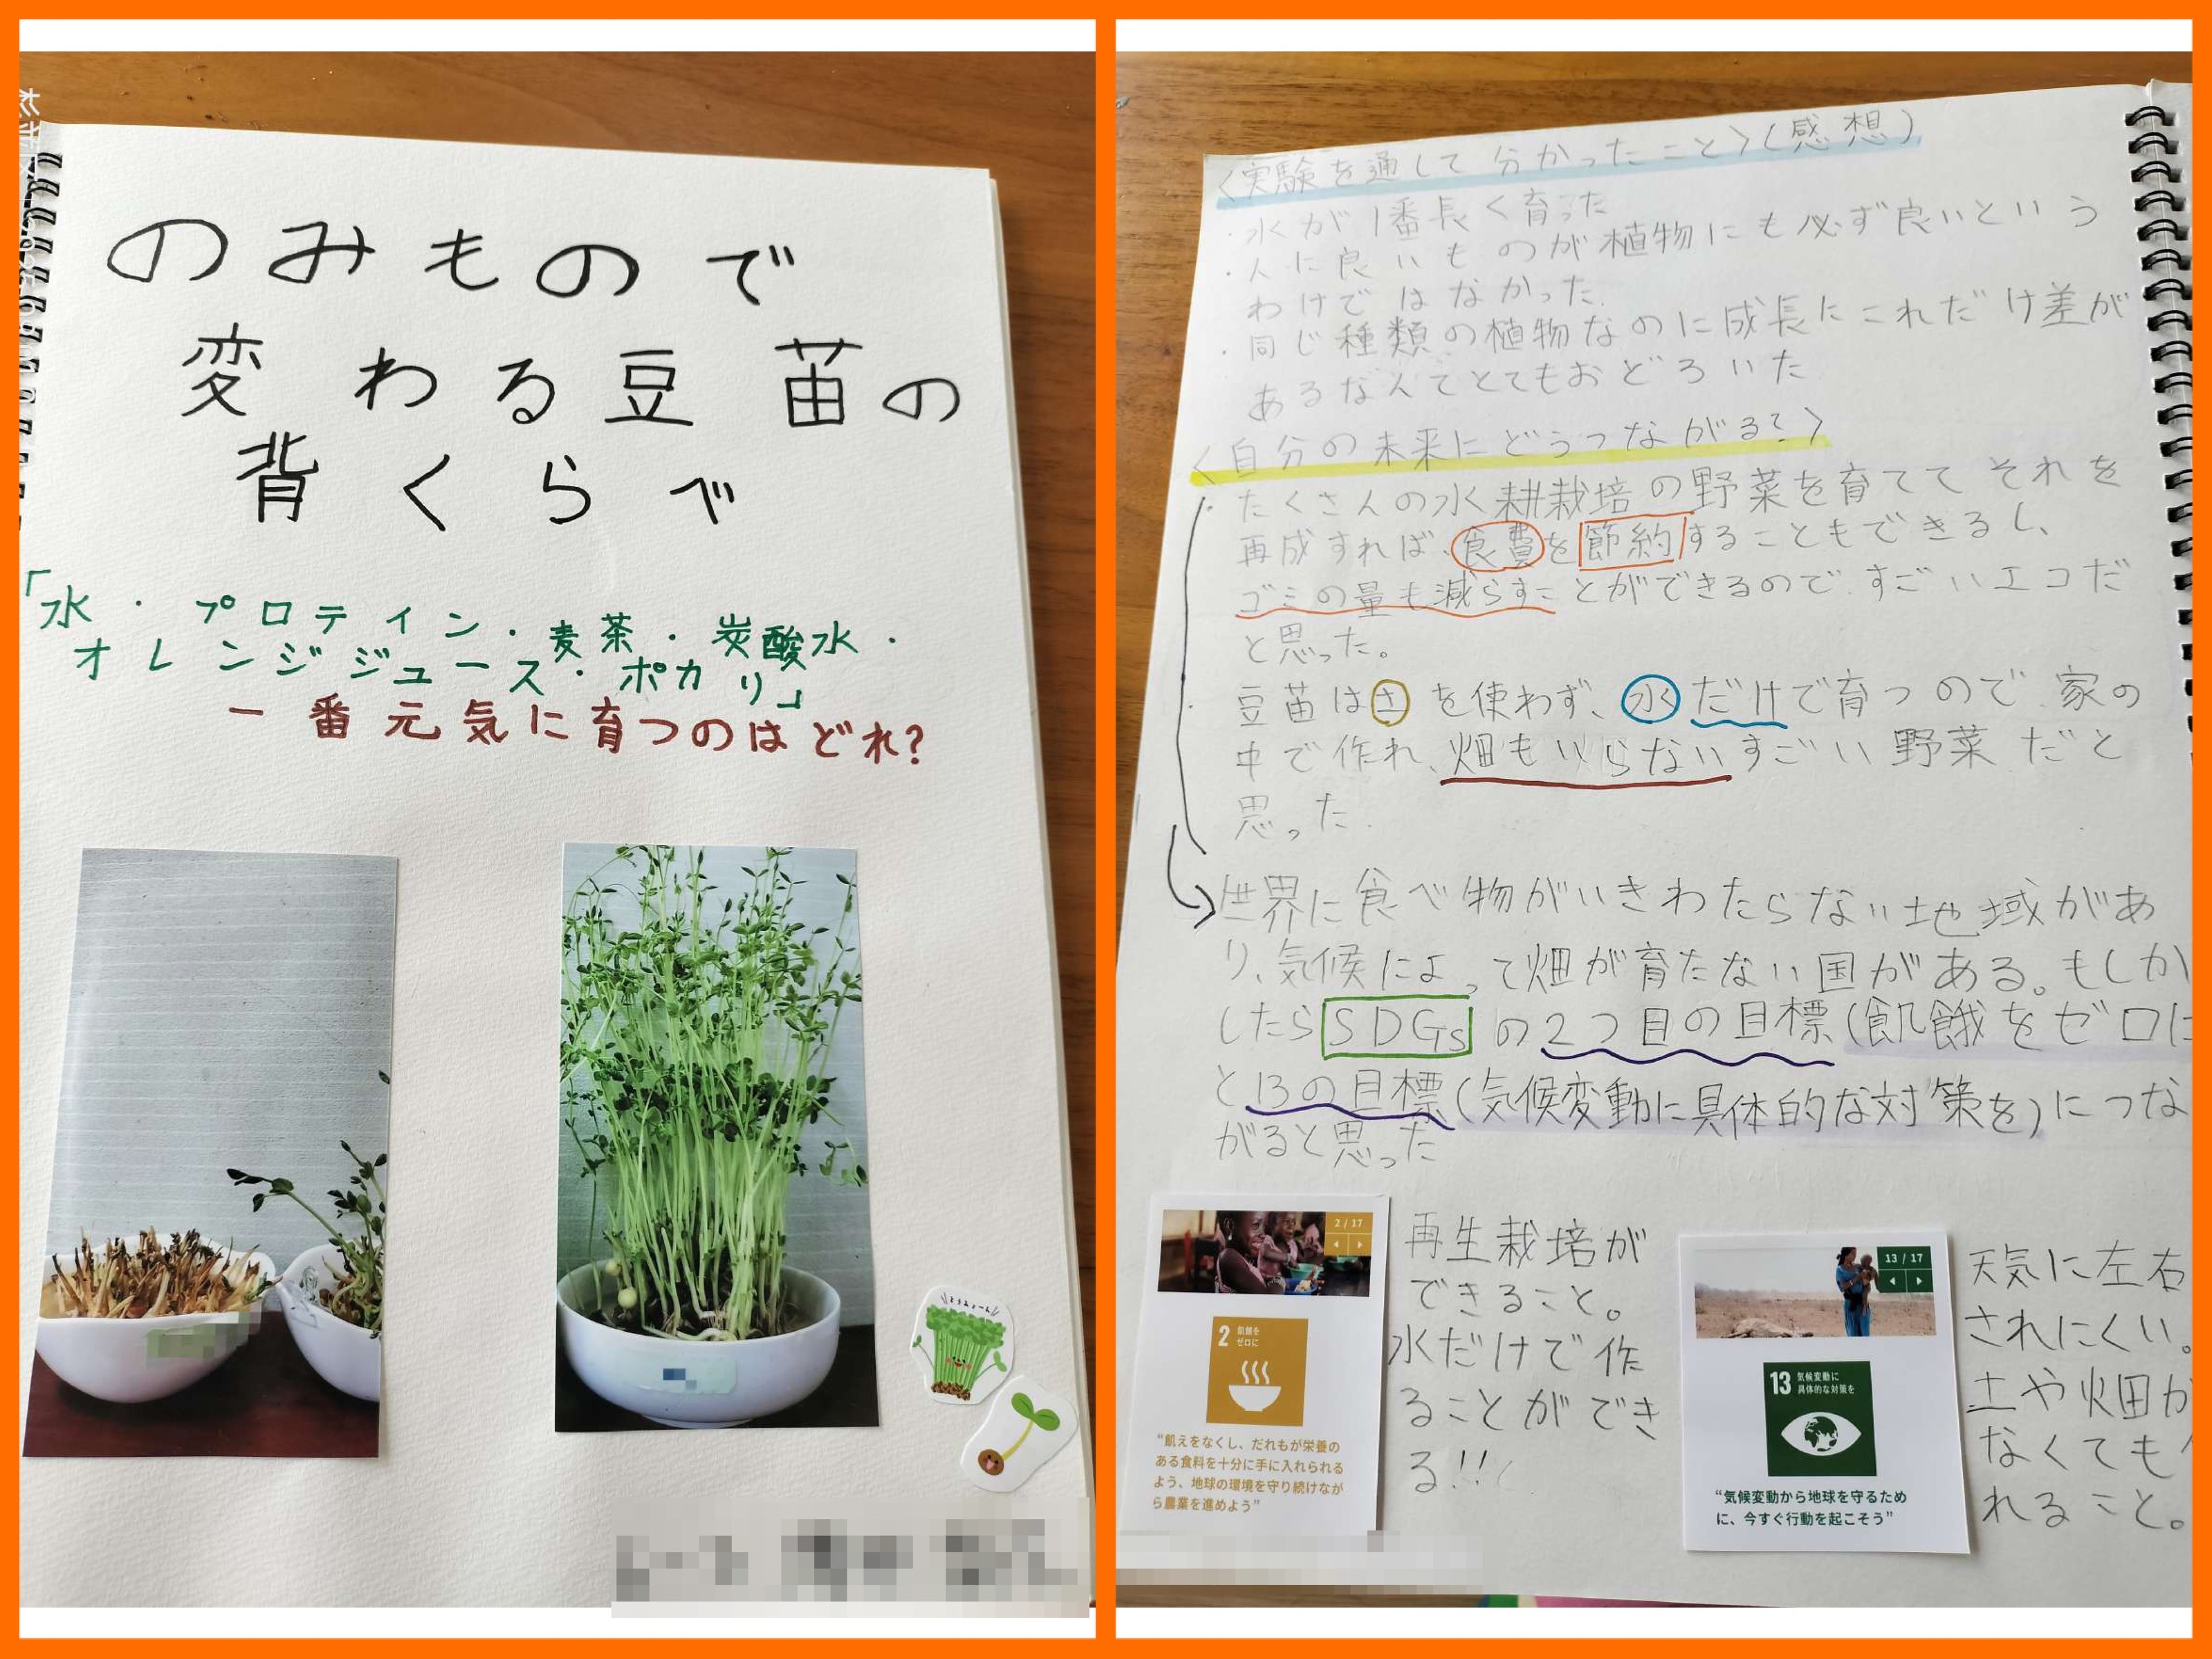 のみもので
変わる豆苗の
背くらべ
「水・プロテイン・麦茶・炭酸水・
オレンジジュース・ポカリ」
一番元気に育つのはどれ?
<実験を通して分かったこと>(感想)
・水が1番長く育った
・人に良いものが植物にも必ず良いという
わけではなかった.
・同じ種類の植物なのに成長にこれだけ差が
あるなんてとてもおどろいた
<自分の未来にどうつながる?>
・たくさんの水耕栽培の野菜を育ててそれを
再成すれば、食費を節約することもできるし、
ゴミの量も減らすことができるので、すごいエコだ
と思った。
・豆苗は土を使わず、水だけで育つので家の
中で作れ、畑もいらないすごい野菜だと
思った.
世界に食べ物がいきわたらない地域があ
り、気候によって畑が育たない国がある。もしか
したらSDGsの2つ目の目標(飢餓をゼロに
と13の目標(気候変動に具体的な対策を)につな
がると思った
2/17
2 飢餓を
ゼロに
“飢えをなくし、だれもが栄養の
ある食料を十分に手に入れられる
よう、地球の環境を守り続けなが
ら農業を進めよう”
再生栽培が
できること。
水だけで作
ることができ
る!!
13/17
13 気候変動に
具体的な対策を
“気候変動から地球を守るため
に、今すぐ行動を起こそう”
天気に左右
されにくい。
土や畑が
なくても
れること。